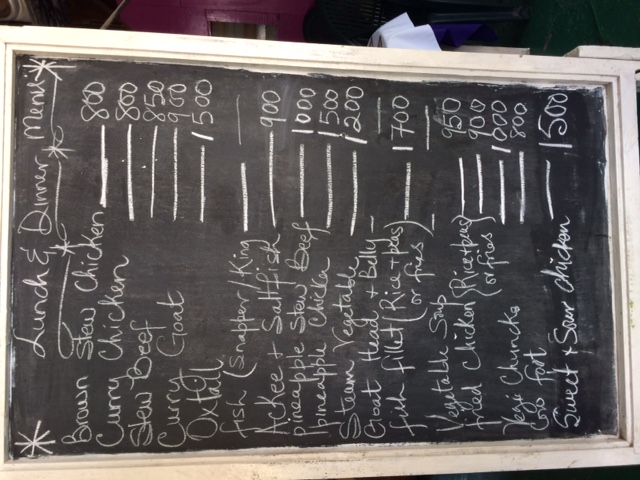 Lunch & Dinner Menu
Brown Stew Chicken — 800
Curry Chicken — 800
Stew Beef — 850
Curry Goat — 900
Oxtail — 1500
Fish (Snapper/King — —
Ackee + Saltfish — 900
Pineapple Stew Beef — 1000
pineapple Chicken — 1500
Steam Vegetable — 1200
Goat Head + Belly — —
fish fillet (Rice + peas — 1700
or fries) — —
Vegetable Soup — 950
fried Chicken (Rice+peas) — 900
or fries
Vegi Chuncks — 1000
Cow foot — 800
Sweet & Sour chicken — 1500